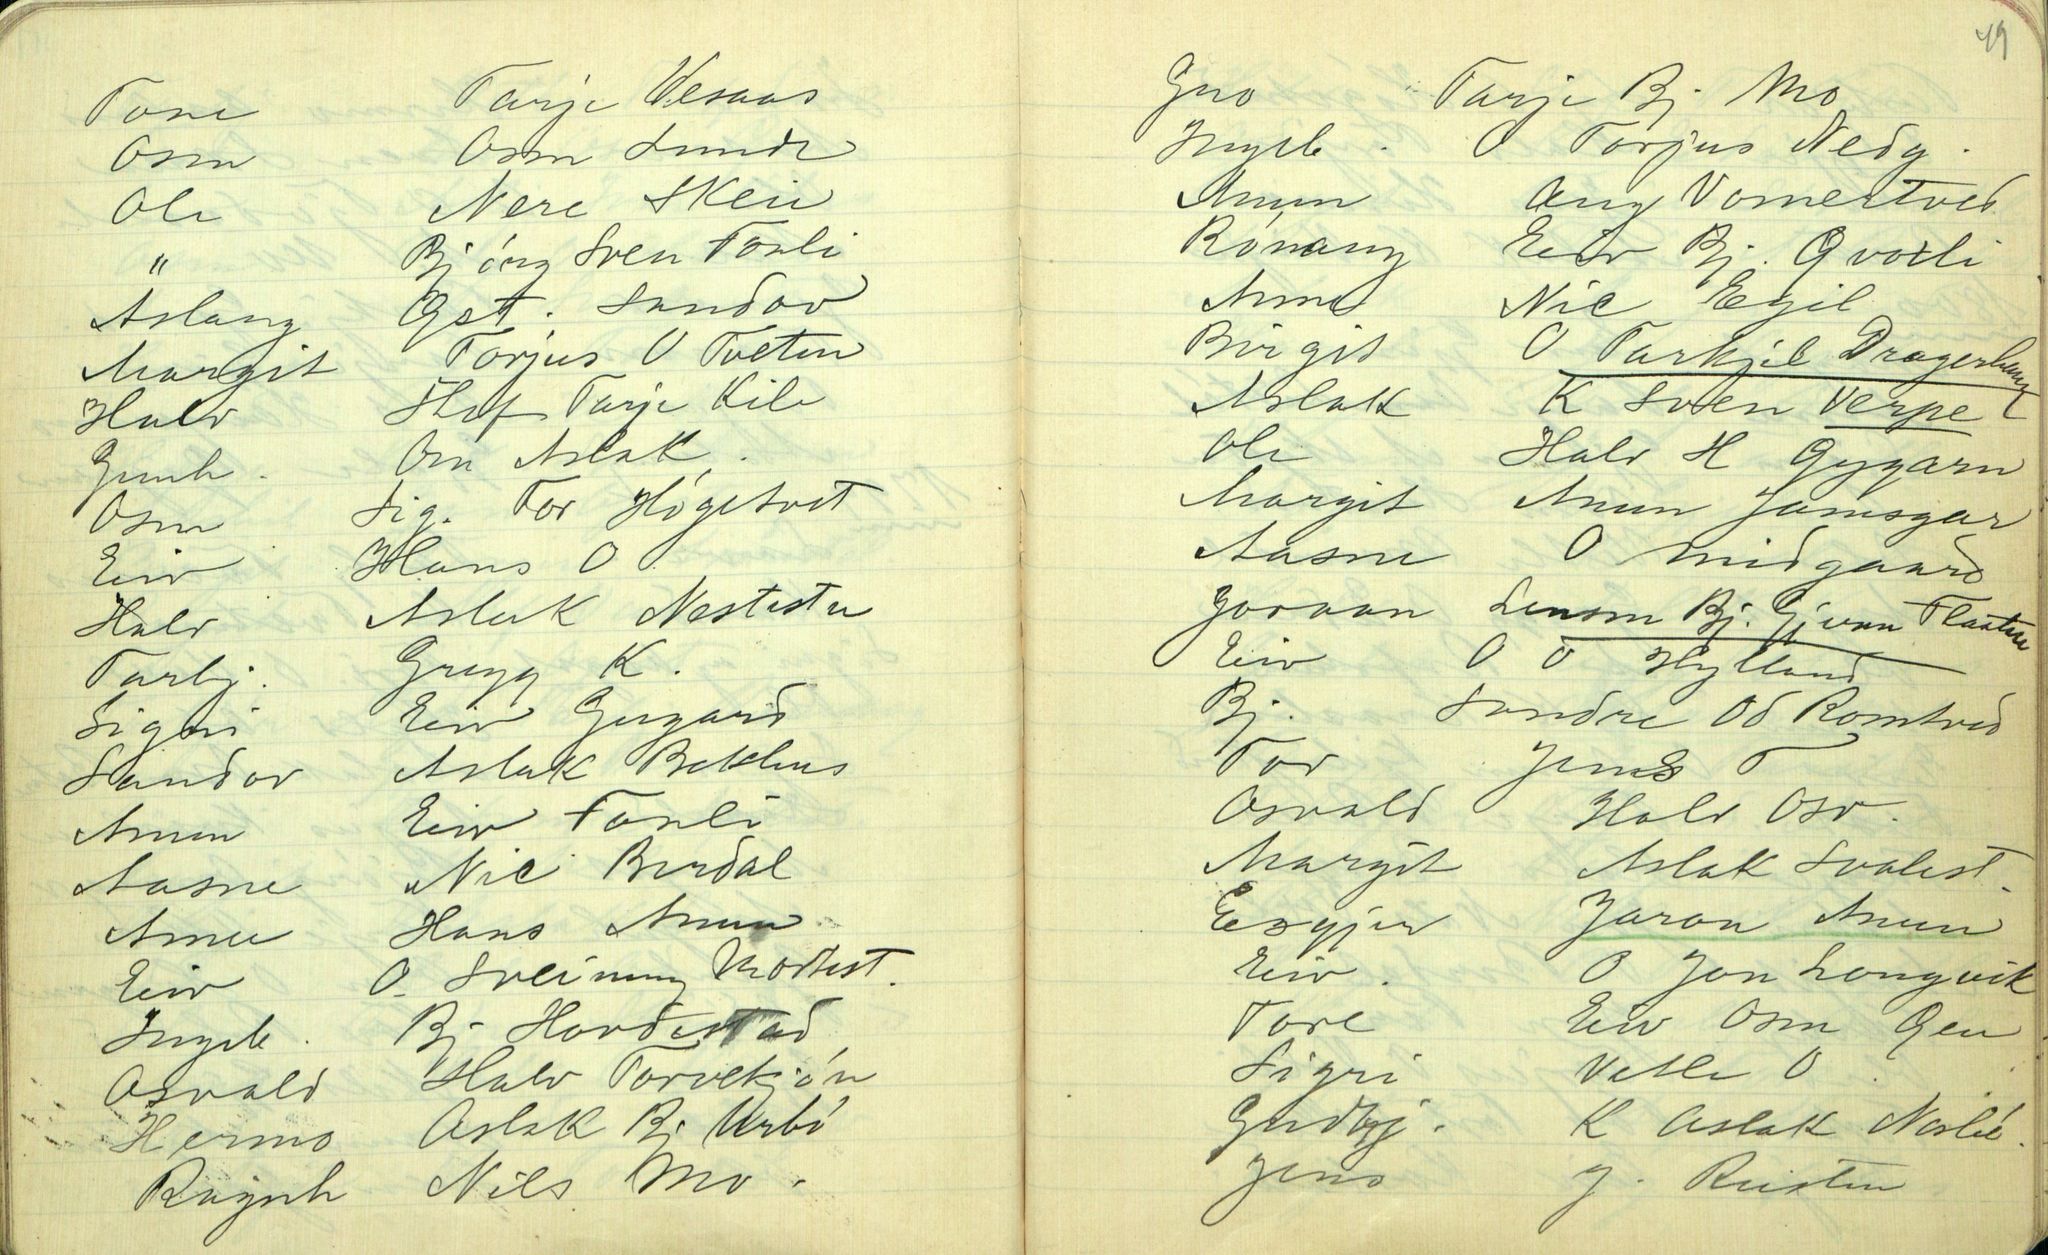 Tone Tarje Vesaas
Osm Osm Sundt
Ole Nere Skeie
" Bjørg Sven Tonli
Aslaug Gst. Sundov
Margit Torjus O Tveten
Halv Stef Tarje Kile
Gunh. Osm Aslak.
Osm Sig. Tor Høgetvet
Eiv Hans O
Halv Aslak Nestestu
Tarbj. Gregg K.
Sigri Eiv Gugard
Sundov Aslak Bekhus
Anun Eiv Tonli
Aasne Nic Berdal
Anne Hans Anun
Eiv O. Sveinung Modtest.
Ingeb. Bj Hordestad
Osvald Halv Torvetjøn
Hermo Aslak Bj Urbø
Ragnh Nils Mo.
49
Gro Tarje Bj. Mo
Ingeb. O Torjus Nedg.
Anun Aug Vomertved
Rønaug Eiv Bj. Qvaali
Anne Nic Egil
Birgit O Tarkjil Dragerhaug
Aslak K Sven Verpe
Ole Halv H Gygarn
Margit Anun Jamsgar
Aasne O Midgaard
Joraan Bj. Gjivan Flaaten
Eiv O O Hylland
Bj. Sondre Od Romtved
Tor Jens T
Osvald Halv Osv.
Margit Aslak Svalest.
Joron Anun
Eiv. O Jon Longvik
Tore Eiv Osm Gen
Sigri Vetle O.
Gudbj. K Aslak Norlie.
Jens J. Reisten